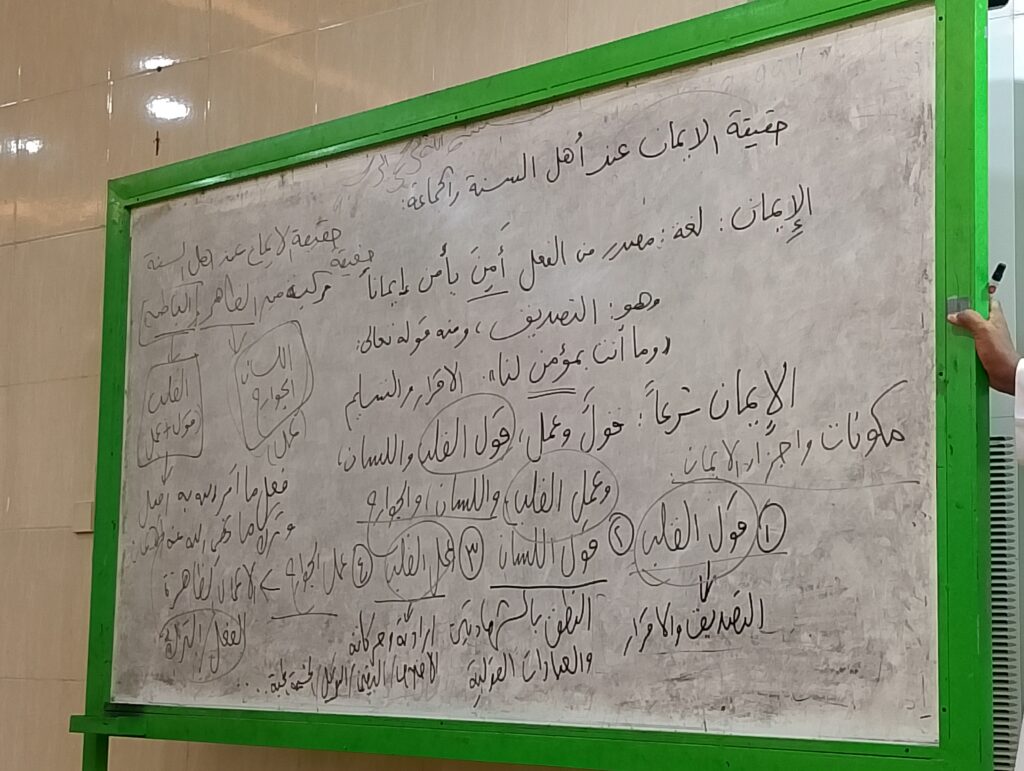 حقيقة الإيمان عند أهل السنة والجماعة:
الإيمان: لغة: مصدر من الفعل أَمِنَ يأمن إيماناً
وهو: التصديق، ومنه قوله تعالى:
(وما أنت بمؤمن لنا). الاقرار والتسليم
الإيمان شرعاً: قولٌ وعمل، قول القلب واللسان،
وعمل القلب، واللسان، والجوارح
مكونات واجزاء الايمان
① قول القلب ② قول اللسان ③ عمل القلب ④ عمل الجوارح > الاعمال الظاهرة
التصديق والاقرار
النطق بالشهادتين
والعبادات القولية
إرادته وحركاته
الفعل / الترك
حقيقة الايمان عند اهل السنة
حقيقة مركبة من الظاهر / الباطن
اللسان
الجوارح
(عمل)
القلب
قول + عمل
فعل ما أمر الله به
وترك ما نهى الله عنه